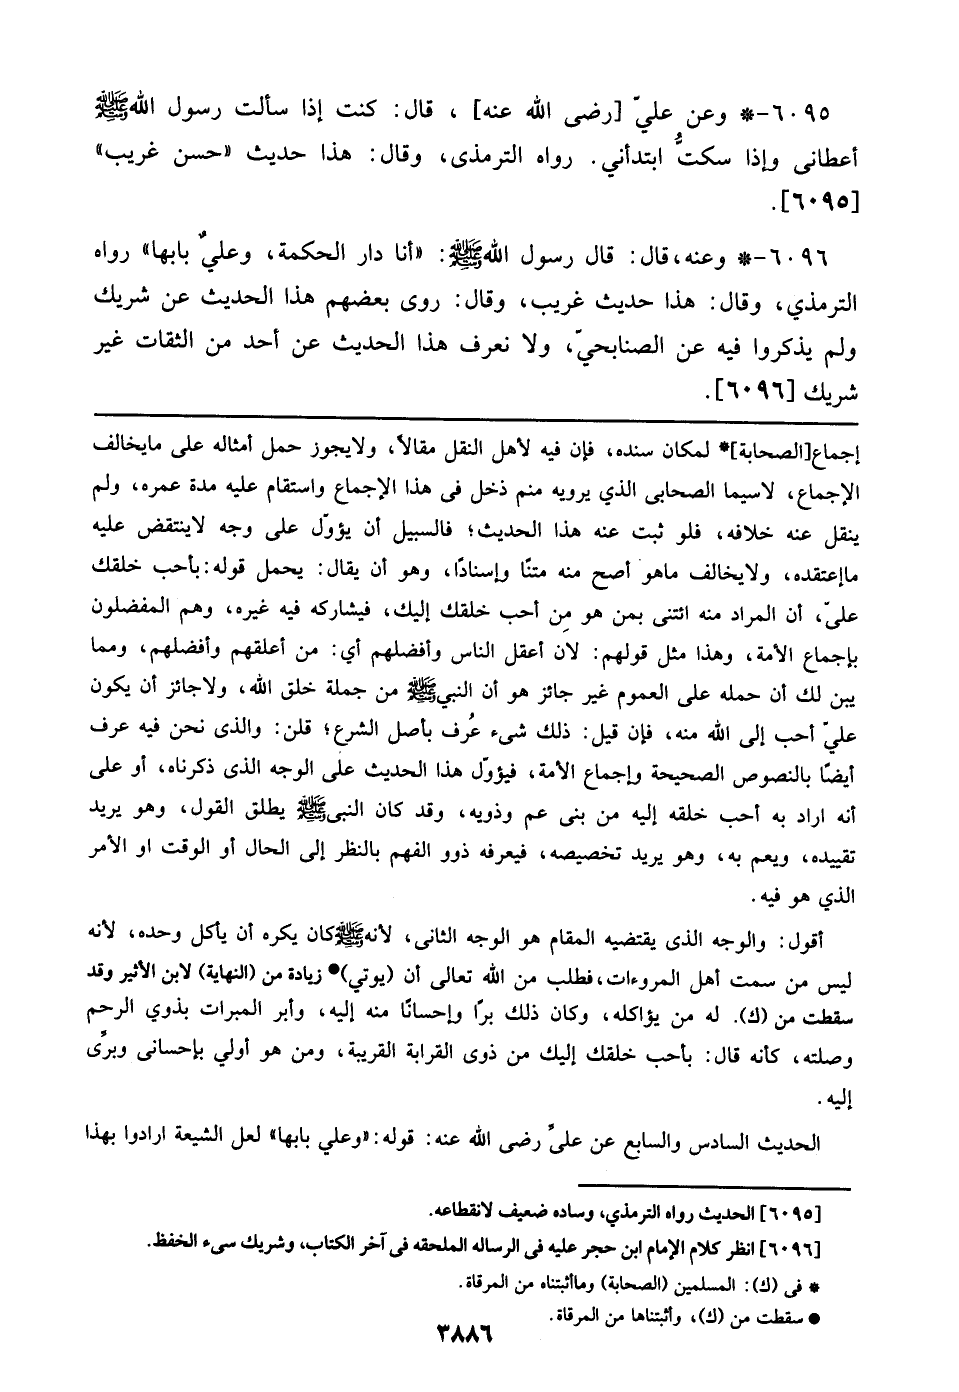 ٦٠٩٥-* وعن عليّ [رضى الله عنه] ، قال: كنت إذا سألت رسول اللهﷺ
أعطانى وإذا سكتُّ ابتدأني. رواه الترمذى، وقال: هذا حديث «حسن غريب»
[٦٠٩٥].
٦٠٩٦-* وعنه،قال: قال رسول اللهﷺ: «أنا دار الحكمة، وعليٌ بابها» رواه
الترمذي، وقال: هذا حديث غريب، وقال: روى بعضهم هذا الحديث عن شريك
ولم يذكروا فيه عن الصنابحيّ، ولا نعرف هذا الحديث عن أحد من الثقات غير
شريك [٦٠٩٦].
إجماع[الصحابة]* لمكان سنده، فإن فيه لأهل النقل مقالاً، ولايجوز حمل أمثاله على مايخالف
الإجماع، لاسيما الصحابى الذي يرويه منم ذخل فى هذا الإجماع واستقام عليه مدة عمره، ولم
ينقل عنه خلافه، فلو ثبت عنه هذا الحديث؛ فالسبيل أن يؤوّل على وجه لاينتقض عليه
ماإعتقده، ولايخالف ماهو أصح منه متنًا وإسنادًا، وهو أن يقال: يحمل قوله:بأحب خلقك
علىّ، أن المراد منه ائتنى بمن هو مِن أحب خلقك إليك، فيشاركه فيه غيره، وهم المفضلون
بإجماع الأمة، وهذا مثل قولهم: لان أعقل الناس وأفضلهم أي: من أعلقهم وأفضلهم، ومما
يبن لك أن حمله على العموم غير جائز هو أن النبيﷺ من جملة خلق الله، ولاجائز أن يكون
عليّ أحب إلى الله منه، فإن قيل: ذلك شىء عُرف بأصل الشرع؛ قلن: والذى نحن فيه عرف
أيضًا بالنصوص الصحيحة وإجماع الأمة، فيؤوّل هذا الحديث على الوجه الذى ذكرناه، أو على
أنه اراد به أحب خلقه إليه من بنى عم وذويه، وقد كان النبىﷺ يطلق القول، وهو يريد
تقييده، ويعم به، وهو يريد تخصيصه، فيعرفه ذوو الفهم بالنظر إلى الحال أو الوقت او الأمر
الذي هو فيه.
أقول: والوجه الذى يقتضيه المقام هو الوجه الثانى، لأنهﷺكان يكره أن يأكل وحده، لأنه
ليس من سمت أهل المروءات،فطلب من الله تعالى أن (يوتي)● زيادة من (النهاية) لابن الأثير وقد
سقطت من (ك). له من يؤاكله، وكان ذلك برًا وإحسانًا منه إليه، وأبر المبرات بذوي الرحم
وصلته، كأنه قال: بأحب خلقك إليك من ذوى القرابة القريبة، ومن هو أولي بإحسانى وبرًى
إليه.
الحديث السادس والسابع عن علىًّ رضى الله عنه: قوله:«وعلي بابها» لعل الشيعة ارادوا بهذا
[٦٠٩٥] الحديث رواه الترمذي، وساده ضعيف لانقطاعه.
[٦٠٩٦] انظر كلام الإمام ابن حجر عليه فى الرساله الملحقه فى آخر الكتاب، وشريك سىء الخفظ.
* فى (ك): المسلمين (الصحابة) وماأثبتناه من المرقاة.
● سقطت من (ك)، وأثبتناها من المرقاة.
٣٨٨٦